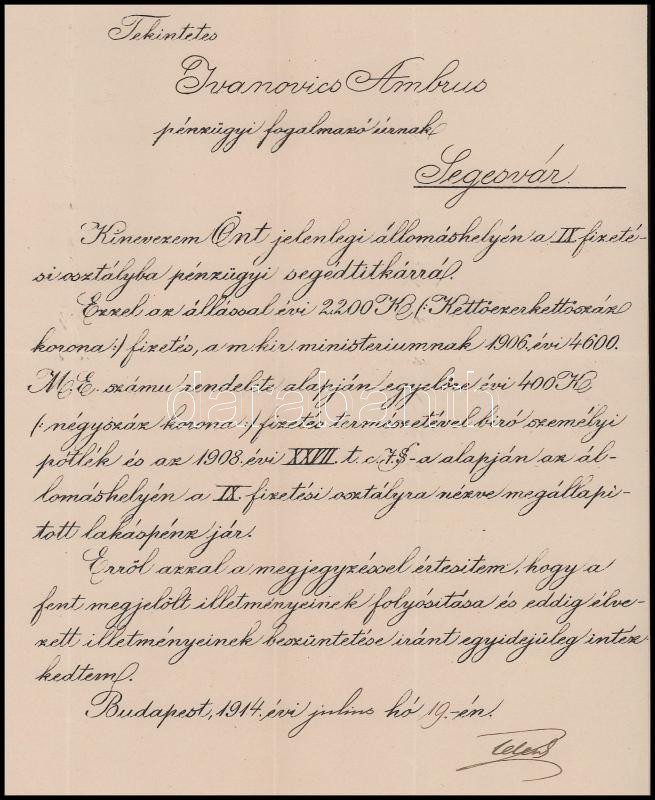 Tekintetes
Ivanovics Ambrus
pénzügyi fogalmazó úrnak
Segesvár.
Kinevezem Önt jelenlegi állomáshelyén a IX fizeté-
si osztályba pénzügyi segédtitkárrá.
Ezzel az állással évi 2.200 K (: Kettőezerkettőszáz
korona :) fizetés, a m. kir. ministeriumnak 1906. évi 4600.
M. E. számu rendelete alapján egyelőre évi 400 K
(: négyszáz korona :) fizetés természetével biró személyi
pótlék és az 1908. évi XXVII. t. c. 7. §-a alapján az ál-
lomáshelyén a IX. fizetési osztályra nézve megállapi-
tott lakáspénz jár.
Erről azzal a megjegyzéssel értesitem, hogy a
fent megjelölt illetményeinek folyósitása és eddig élve-
zett illetményeinek beszüntetése iránt egyidejüleg intéz
kedtem.
Budapest, 1914. évi julius hó 19.-én.
darabanth